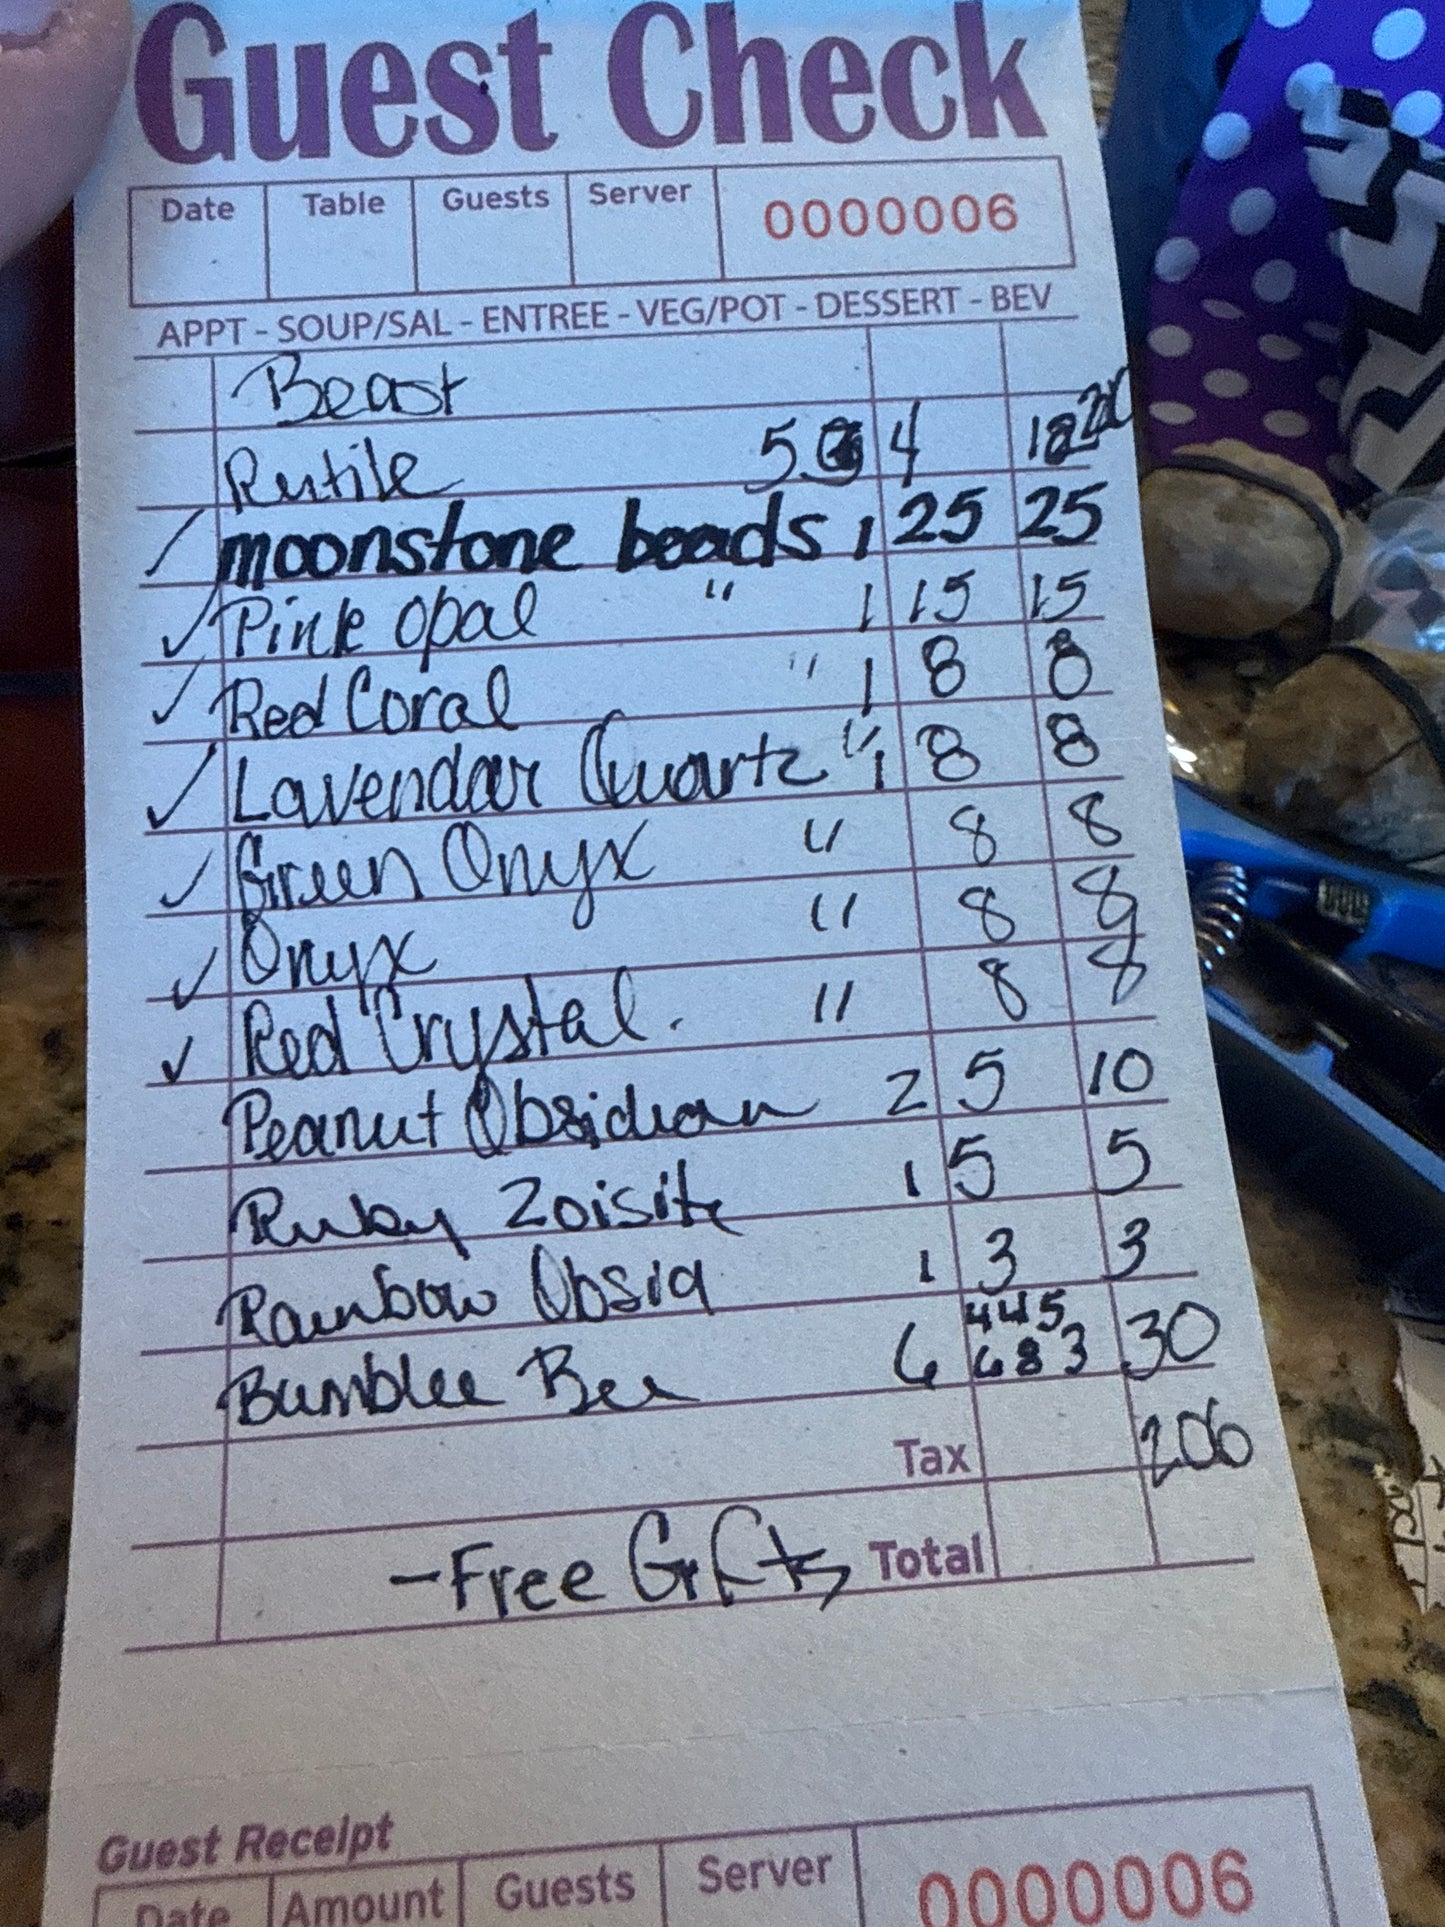 Guest Check
Date Table Guests Server 0000006
APPT - SOUP/SAL - ENTREE - VEG/POT - DESSERT - BEV
Beast
Rutile 5 4
✓ moonstone beads 1 25 25
✓ Pink opal " 1 15 15
✓ Red Coral " 1 8 8
✓ Lavendar Quartz " 1 8 8
✓ Green Onyx " 8 8
✓ Onyx " 8 8
✓ Red Crystal. " 8 8
Peanut Obsidian 2 5 10
Ruby Zoisite 1 5 5
Rainbow Obsid 1 3 3
4 4 5
Bumblee Bee 6 6 8 3 30
Tax 206
-Free Gifts Total
Guest Receipt
Date Amount Guests Server 0000006